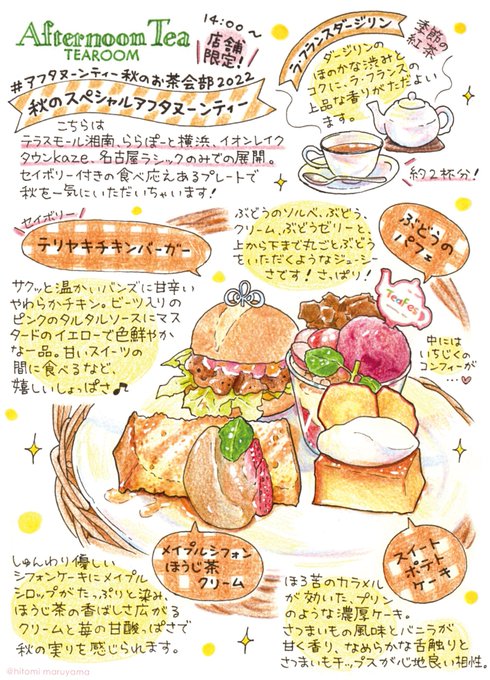 Afternoon Tea
TEAROOM
14:00〜
店舗
限定!
#アフタヌーンティー秋のお茶会部2022
秋のスペシャルアフタヌーンティー
こちらは
テラスモール湘南、ららぽーと横浜、イオンレイク
タウンkaze、名古屋ラシックのみでの展開。
セイボリー付きの食べ応えあるプレートで
秋を一気にいただいちゃいます!
ラ・フランスダージリン
季節の
紅茶
ダージリンの
ほのかな渋みと
コクに、ラ・フランスの
上品な香りがただよい
ます。
約2杯分!
セイボリー
テリヤキチキンバーガー
サクッと温かいバンズに甘辛い
やわらかチキン。ビーツ入りの
ピンクのタルタルソースにマス
タードのイエローで色鮮やか
な一品。甘いスイーツの
間に食べるなど、
嬉しいしょっぱさ♪
ぶどうの
パフェ
ぶどうのソルベ、ぶどう、
クリーム、ぶどうゼリーと
上から下まで丸ごとぶどう
をいただくようなジューシー
さです!さっぱり!
TeaFes
中には
いちじくの
コンフィーが
…♡
メイプルシフォン
ほうじ茶
クリーム
しゅんわり優しい
シフォンケーキにメイプル
シロップがたっぷりと染み、
ほうじ茶の香ばしさ広がる
クリームと苺の甘酸っぱさで
秋の実りを感じられます。
スイート
ポテト
ケーキ
ほろ苦のカラメル
が効いた、プリン
のような濃厚ケーキ。
さつまいもの風味とバニラが
甘く香り、なめらかな舌触りと
さつまいもチップスが心地良い相性。
@hitomi maruyama